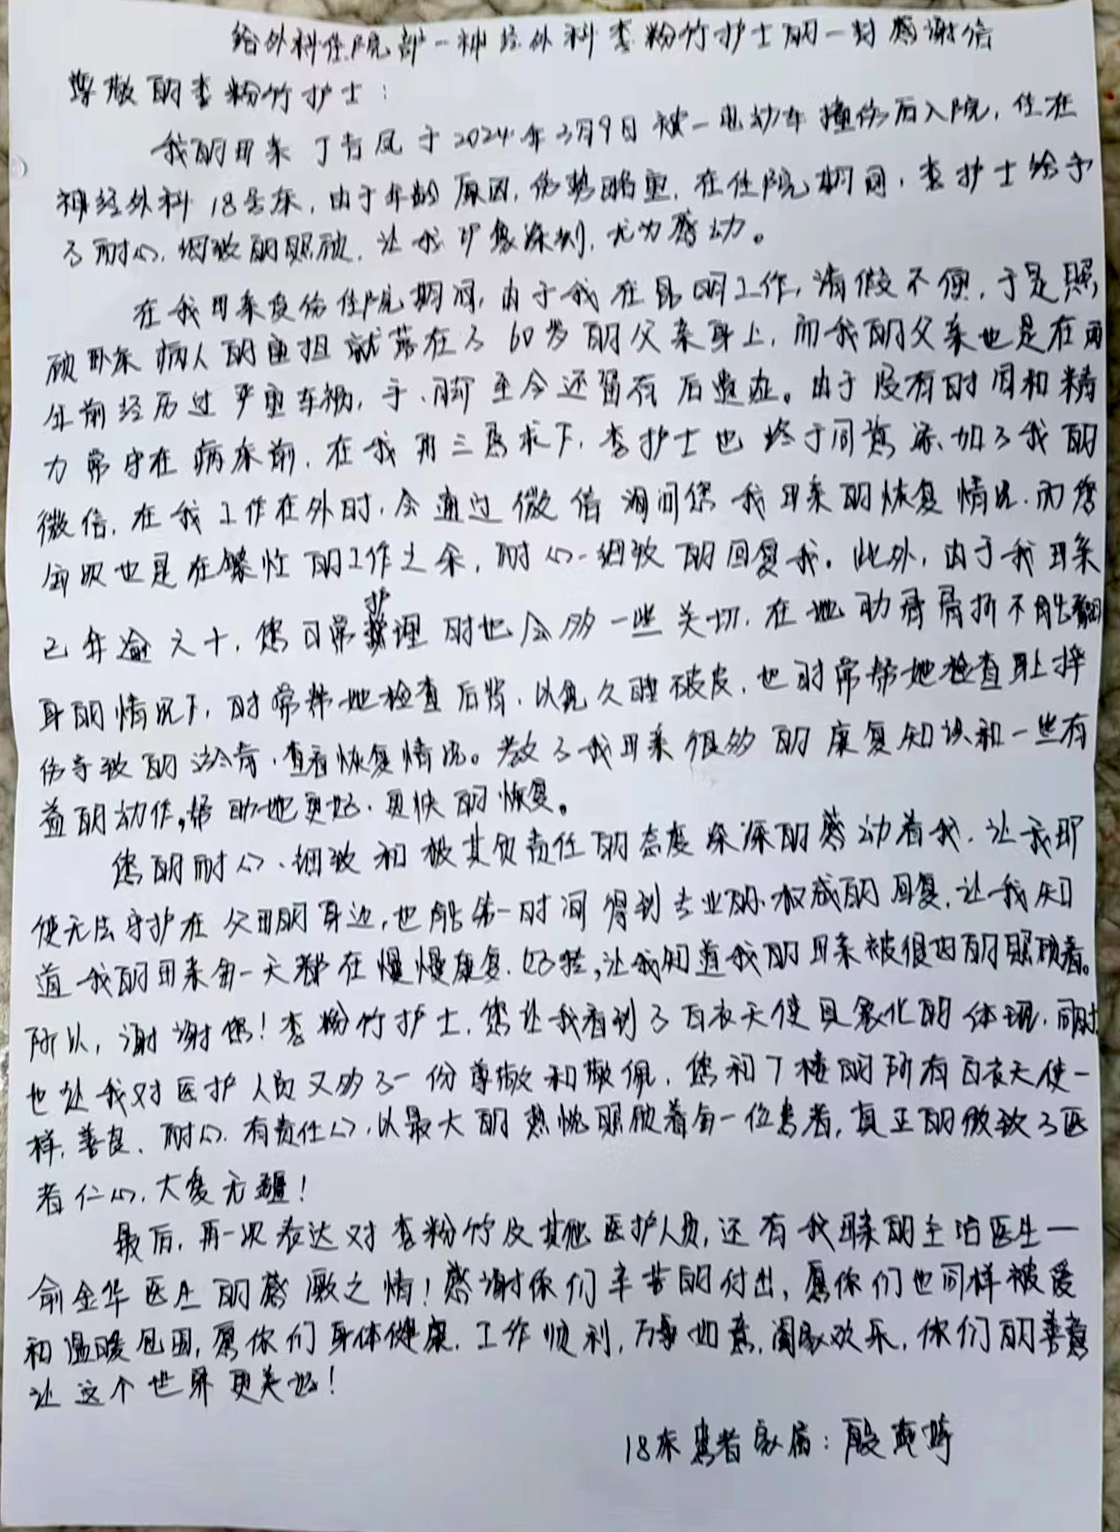 给外科住院部一神经外科李粉竹护士的一封感谢信
尊敬的李粉竹护士：
我的母亲丁右凤于2024年3月9日被一电动车撞伤后入院，住在
神经外科18号床，由于年龄原因，伤势略重，在住院期间，李护士给予
了耐心、细致的照顾，让我印象深刻，尤为感动。
在我母亲受伤住院期间，由于我在昆明工作，请假不便，于是照
顾卧床病人的重担就落在了60岁的父亲身上，而我的父亲也是在两
年前经历过严重车祸，手、脚至今还留有后遗症。由于没有时间和精
力常守在病床前，在我再三恳求下，李护士也终于同意添加了我的
微信，在我工作在外时，会通过微信询问您我母亲的恢复情况，而您
每次也是在繁忙的工作之余，耐心、细致的回复我。此外，由于我母亲
已年逾六十，您日常护理时也会多一些关切，在她肋骨骨折不能翻
身的情况下，时常帮她检查后背，以免久睡破皮，也时常帮她检查身上摔
伤导致的淤青，查看恢复情况。教了我母亲很多的康复知识和一些有
益的动作，帮助她更好、更快的恢复。
您的耐心、细致和极其负责任的态度深深的感动着我，让我即
使无法守护在父母的身边，也能第一时间得到专业的、权威的回复，让我知
道我的母亲每一天都在慢慢康复、好转，让我知道我的母亲被很好的照顾着。
所以，谢谢您！李粉竹护士，您让我看到了白衣天使具象化的体现，同时
也让我对医护人员又多了一份尊敬和敬佩，您和7楼的所有白衣天使一
样，善良、耐心、有责任心，以最大的热忱照顾着每一位患者，真正的做到了医
者仁心，大爱无疆！
最后，再一次表达对李粉竹及其他医护人员，还有我母亲的主治医生——
俞金华医生的感激之情！感谢你们辛苦的付出，愿你们也同样被爱
和温暖包围，愿你们身体健康，工作顺利，万事如意，阖家欢乐，你们的善意
让这个世界更美好！
18床患者家属：殷燕婷